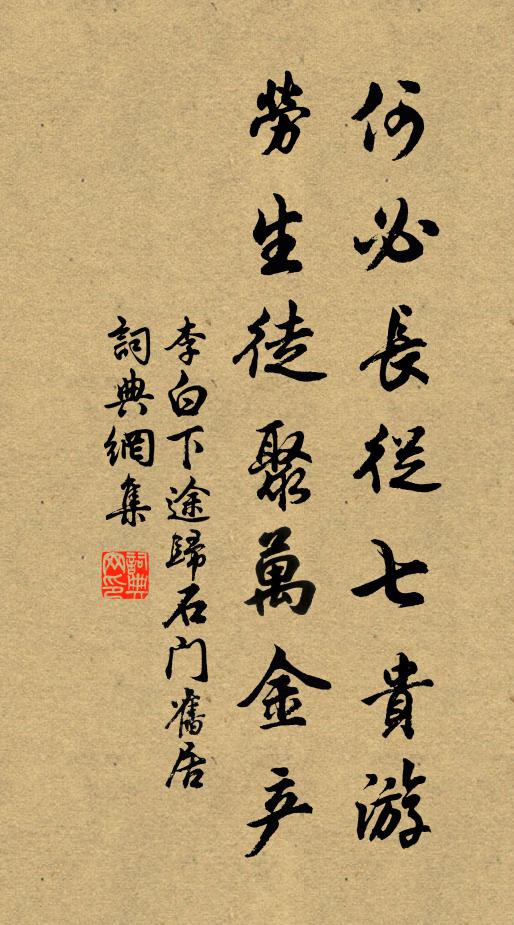 何必長從七貴游
勞生徒聚萬金产
李白下途歸石门舊居
詞典網集
詞典网印